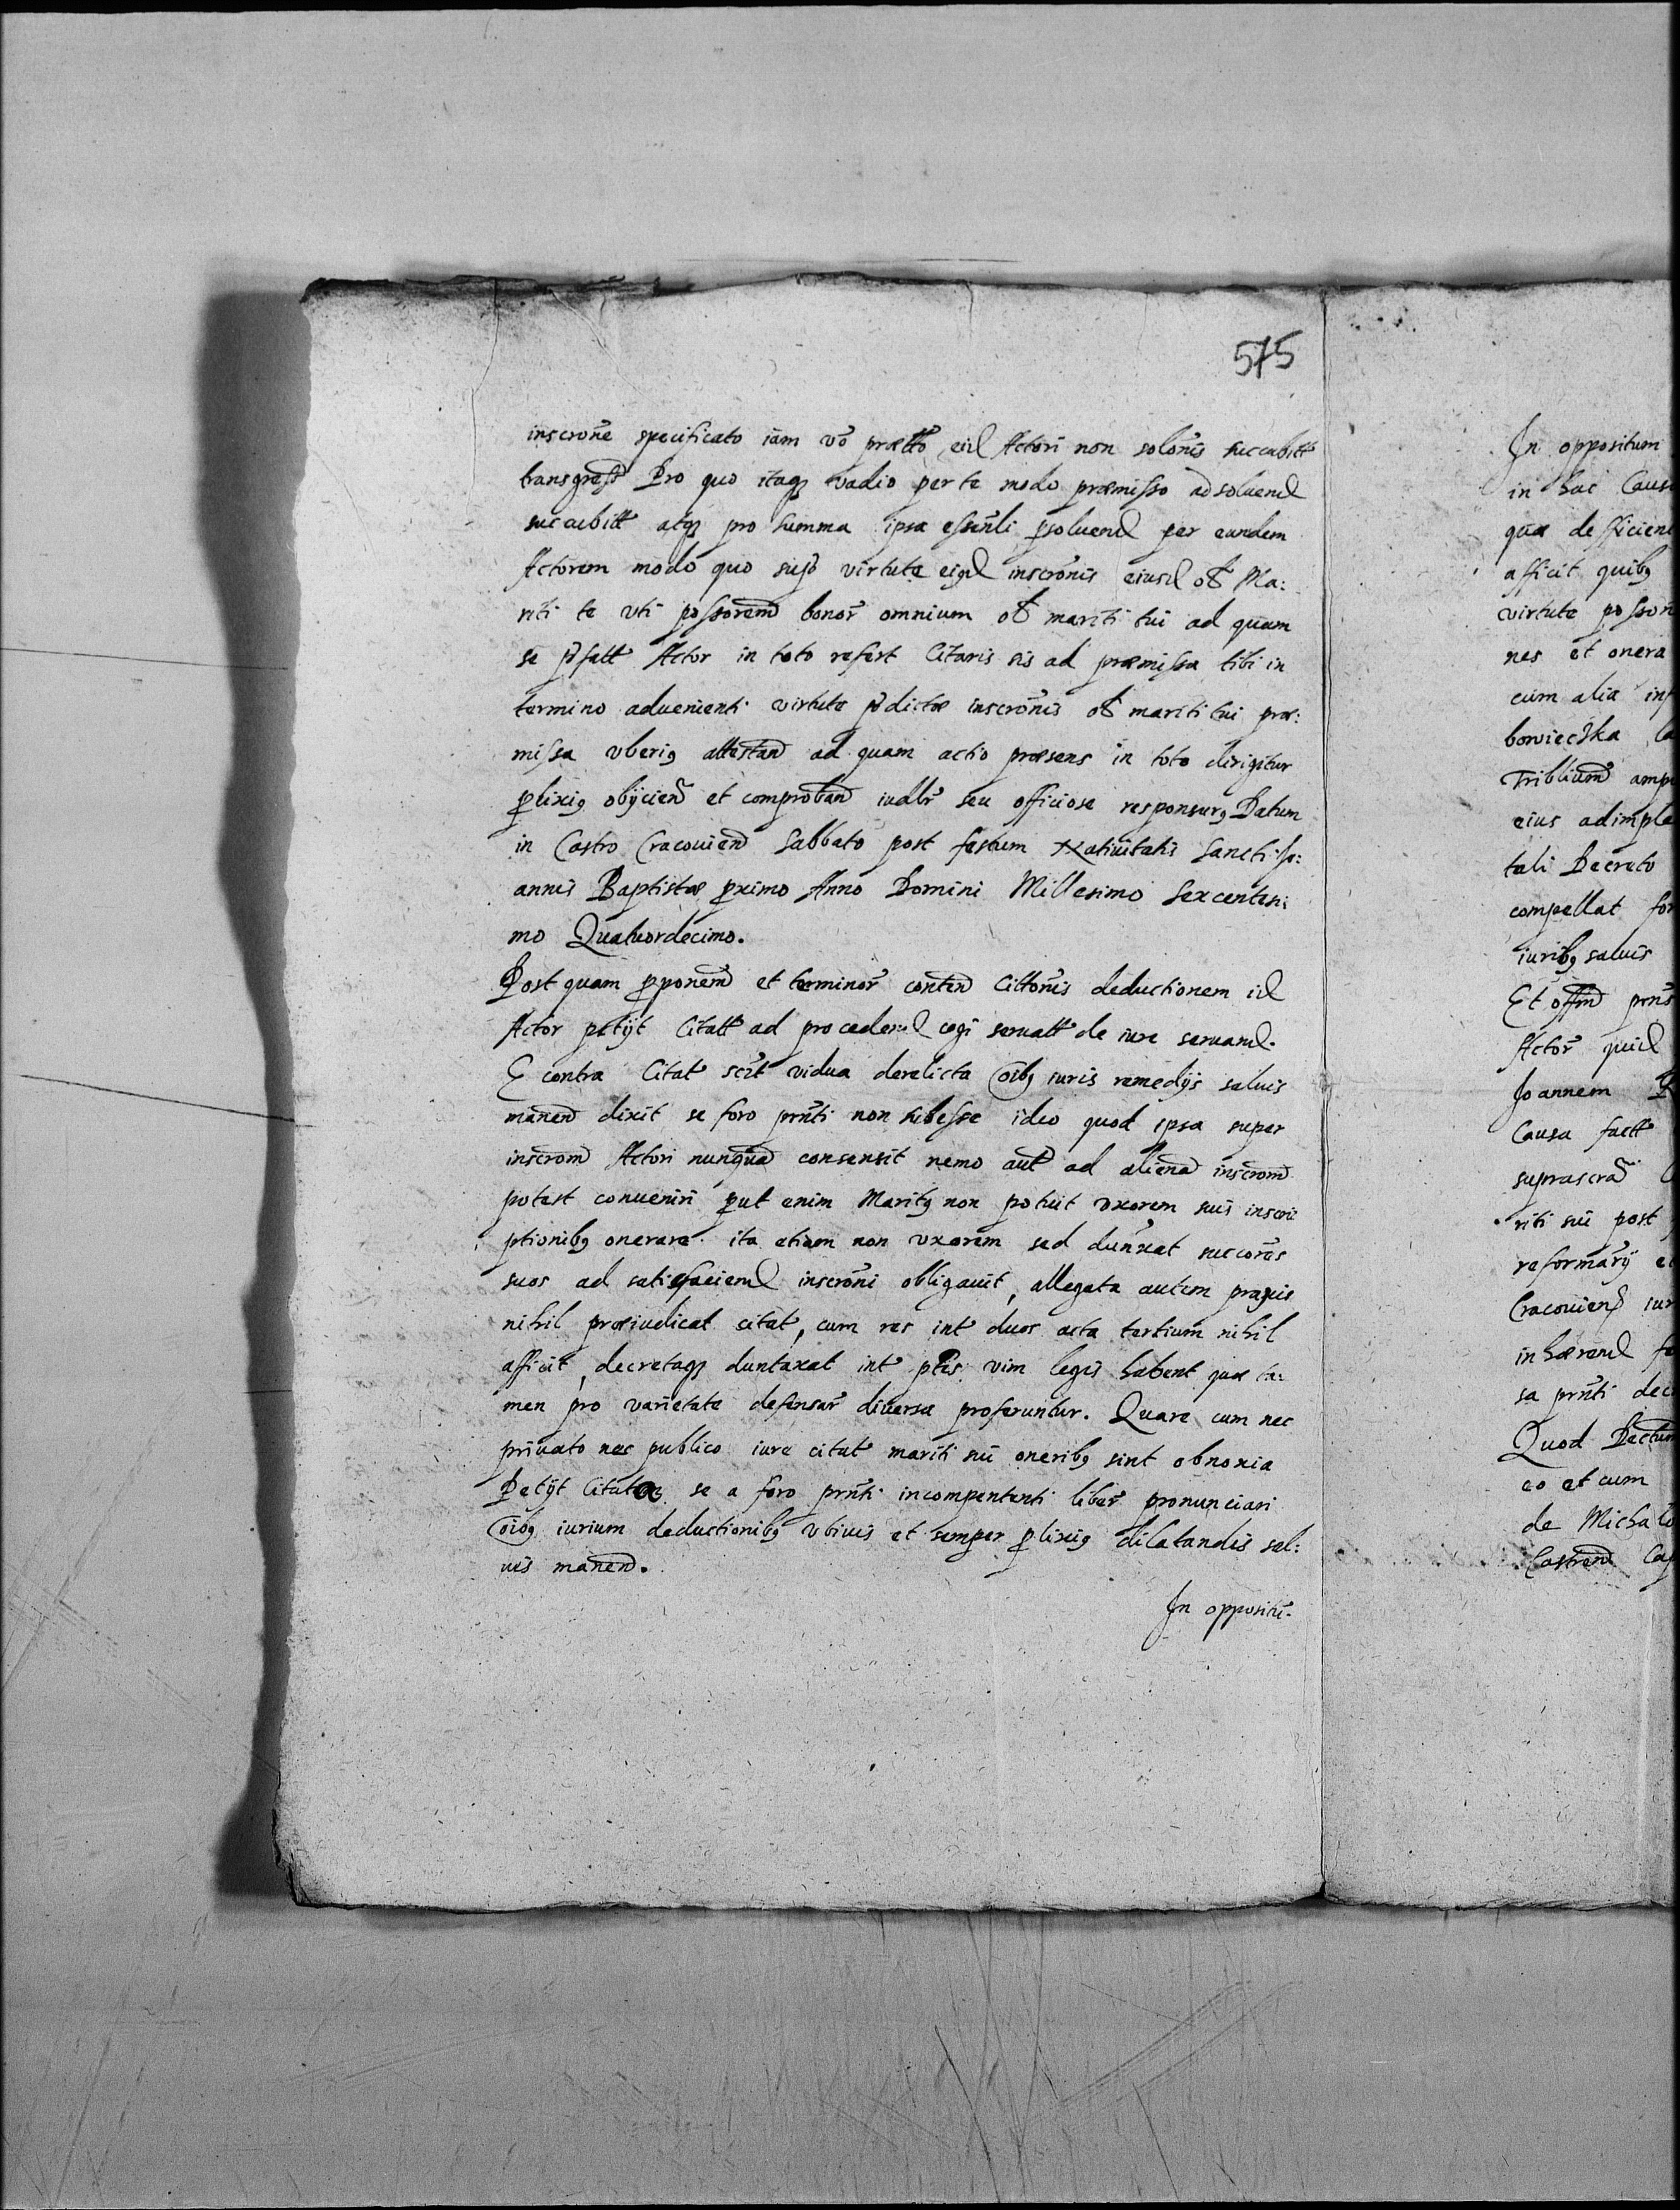 575
inscrone specificato iam vo prætto eid Actori non solonis succubitt
transgress Pro quo itaq vadio per te modo præmisso ad soluend
succubitt atq pro summa ipsa essentli psoluend per eundem
Actorem modo quo supo virtute eigd inscronis eiusd ob Ma:
riti te vti possorem bonor omnium ob mariti tui ad quam
se pfatt Actor in toto refert Citaris sis ad præmissa tibi in
termino aduenienti virtute pdictæ inscronis ob mariti tui præ:
missa vberig attestan ad quam actio præsens in toto dirigitur
plixig obijcien et comproban iudlr seu officiose responsurg Datum
in Castro Cracouien Sabbato post festum Natiuitatis Sancti Jo:
annis Baptistæ pximo Anno Domini Millesimo Sexcentesi:
mo Quatuordecimo.
Post quam pponem et terminor conten Cittonis deductionem id
Actor petijt Citatt ad procedend cogi seruatt de iure seruand.
E contra Citat scit vidua derelicta oibg iuris remedijs saluis
manen dixit se foro prnti non subesse ideo quod ipsa super
inscrom Actori nunqua consensit nemo aut ad aliena inscrom
potest conueniri put enim Maritg non potuit vxorem suis inscri
ptionibg onerare ita etiam non vxorem sed dunxat succores
suos ad satisfaciend inscroni obligauit, allegata autem praxis
nihil præiudicat citat, cum res int duos acta tertium nihil
afficit, decretaq duntaxat int ptes vim legis habent quæ ta:
men pro varietate defensar diuersa proferuntur. Quare cum nec
priuato nec publico iure citat mariti sui oneribg sint obnoxia
Petijt Citata se a foro prnti incompententi liber pronunciari
oibg iurium deductionibg vbiuis et semper plixig dilatandis sal:
uis manen.
In oppositu.
In oppositum
in hac Causa
quæ defficien
afficit quibg
virtute posson
nes et onera
cum alia
Triblium
eius adimple
tali Decreto
compellat for
iuribg saluis
Et offm prns
Actor quid
Joannem
Causa factt
suprascra
riti sui post
reformarij
Cracouien iur
inhærend
sa prnti dec
Quod Dectum
eo et cum
de Michalo
Castren Cap